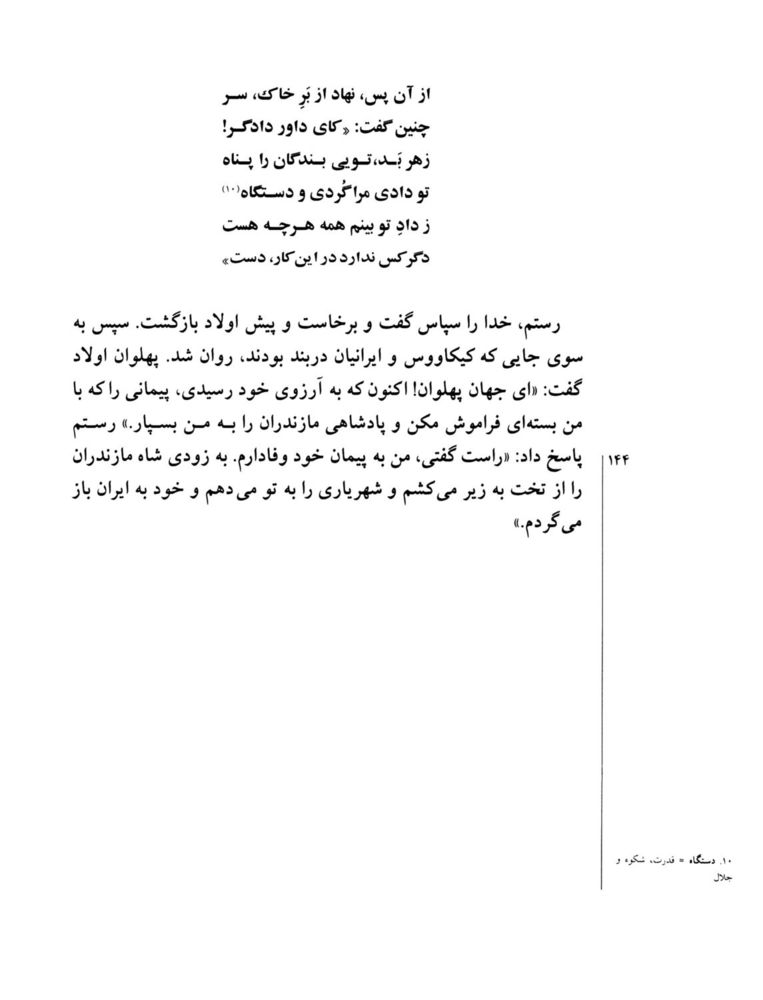 از آن پس، نهاد از بَرِ خاك، سـر
چنین گفت: «کای داور دادگـر!
زهر بَـد،تـویی بـندگان را پـناه
تو دادی مرا گُردی و دسـتگاه(۱۰)
ز دادِ تو بینم همه هـرچـه هست
دگر کس ندارد در این کار، دست»
رستم، خدا را سپاس گفت و برخاست و پیش اولاد بازگشت. سپس به
سوی جایی که کیکاووس و ایرانیان دربند بودند، روان شد. پهلوان اولاد
گفت: «ای جهان پهلوان! اکنون که به آرزوی خود رسیدی، پیمانی را که با
من بسته‌ای فراموش مکن و پادشاهی مازندران را بـه مـن بسـپار.» رسـتم
پاسخ داد: «راست گفتی، من به پیمان خود وفادارم. به زودی شاه مازندران
را از تخت به زیر می‌کشم و شهریاری را به تو می‌دهم و خود به ایران باز
می‌گردم.»
۱۴۴
۱۰. دستگاه = قدرت، شکوه و
جلال